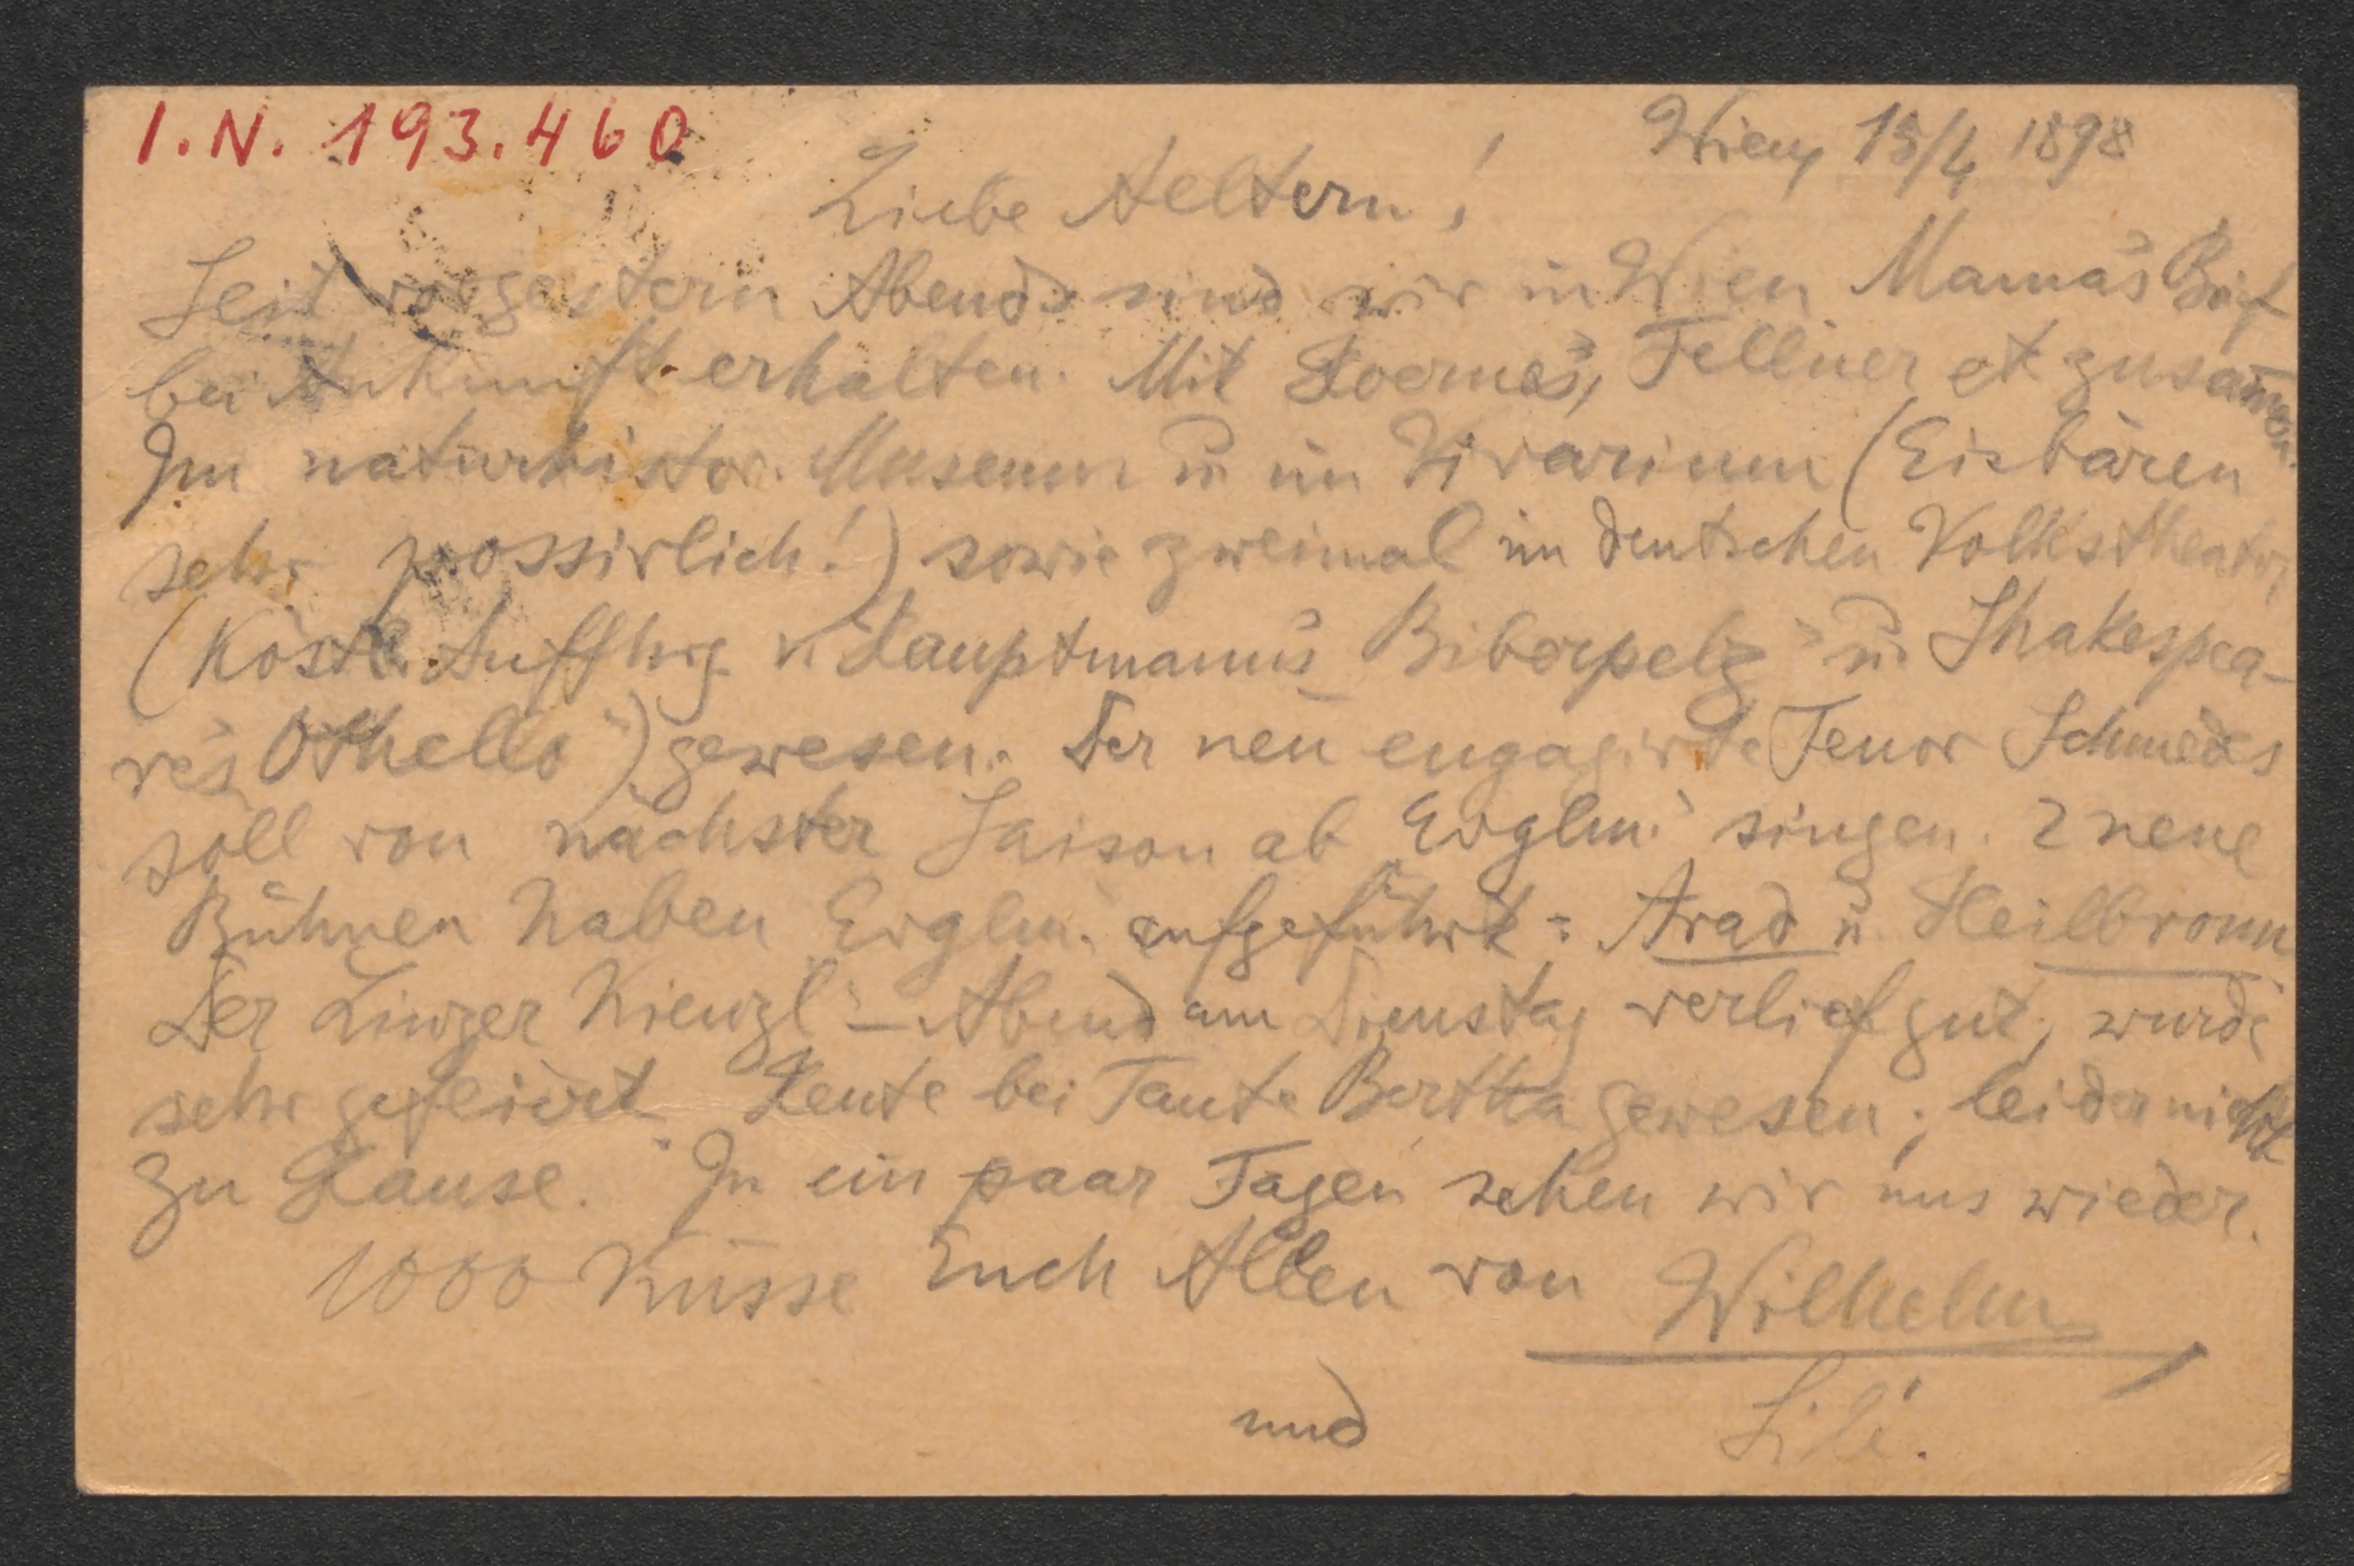 I.N. 193.460
Wien, 15/4 1898
Liebe Aeltern!
Seit vorgestern Abends sind wir in Wien Mama's Brief
bei Ankunft erhalten. Mit Hoernes, Fellner et zusam̄en.
Im naturhistor. Museum u. im Vivarium (Eisbären
sehr possirlich!) sowie zweimal im deutschen Volkstheater,
(Köstl. Auffhrg v. Hauptmann's Biberpelz" u. Shakespea-
re's Othello") gewesen. Der neu engagirte Tenor Schmedes
soll von nächster Saison ab Evglm." singen. 2 neue
Bühnen haben Evglm." aufgeführt: Arad u. Heilbronn
Der Linzer Kienzl-Abend am Dienstag verlief gut, wurde
sehr gefeiert. Heute bei Tante Bertha gewesen; leider nicht
zu Hause. In ein paar Tagen sehen wir uns wieder.
1000 Küsse Euch Allen von Wilhelm
und Lili.